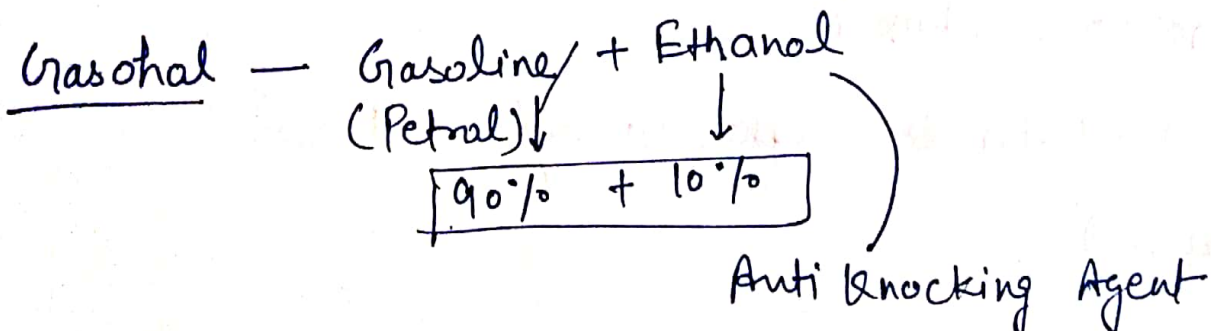 Gasohal — Gasoline + Ethanol
(Petral)
90% + 10%
Anti Knocking Agent